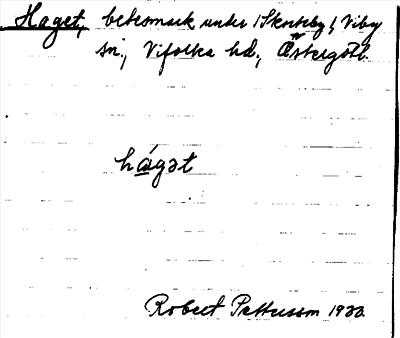 Haget, betesmark under Skorteby, Viby
sn., Vifolka hd., Östergötl.
hágət
Robert Pettersson 1933.